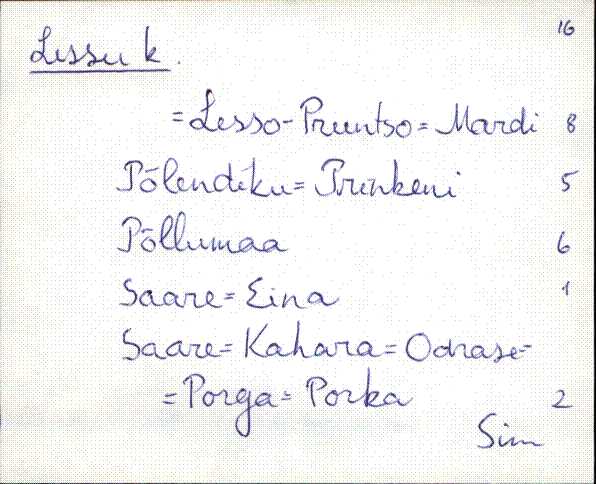 16
Lessu k.
=Lesso-Pruntso=Mardi 8
Põlendiku=Prinkeni 5
Põllumaa 6
Saare=Eina 1
Saare=Kahara=Odrase=
=Porga=Porka 2
Sim